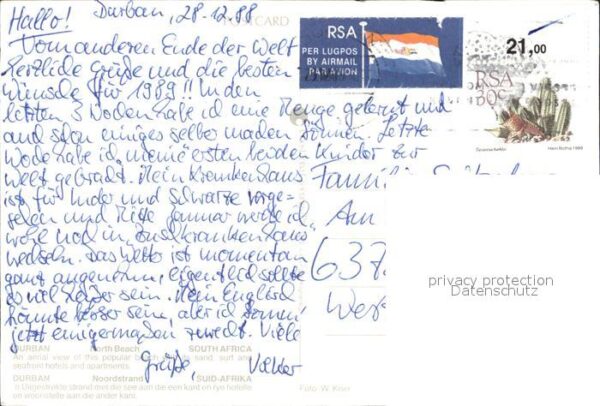 Durban, 28.12.88
Hallo!
POSTCARD
Vom anderen Ende der Welt
herzliche Grüße und die besten
Wünsche für 1989!! In den
letzten 3 Wochen hab ich eine Menge gelernt und
auch schon einiges selber machen können. Letzte
Woche habe ich meine ersten beiden Kinder zur
Welt gebracht. Mein Krankenhaus
ist für Inder und Schwarze vorge-
sehen und Mitte Januar werde ich
wohl noch in Zulukrankenhaus
wechseln. Das Wetter ist momentan
ganz angenehm, eigentlich sollte
es viel heißer sein. Mein Englisch
könnte besser sein, aber ich komm'
jetzt einigermaßen zurecht. Viele
Grüße, Volker
RSA
PER LUGPOS
BY AIRMAIL
PAR AVION
21,00
RSA
30c
Hein Botha 1988
Familie
Am
637
privacy protection
Datenschutz
DURBAN North Beach SOUTH AFRICA
An aerial view of this popular beach sand, surf and
seafront hotels and apartments.
DURBAN Noordstrand SUID-AFRIKA
'n Uitgestrekte strand met die see aan die een kant en rye hotelle
en woonstelle aan die ander kant.
Foto: W.